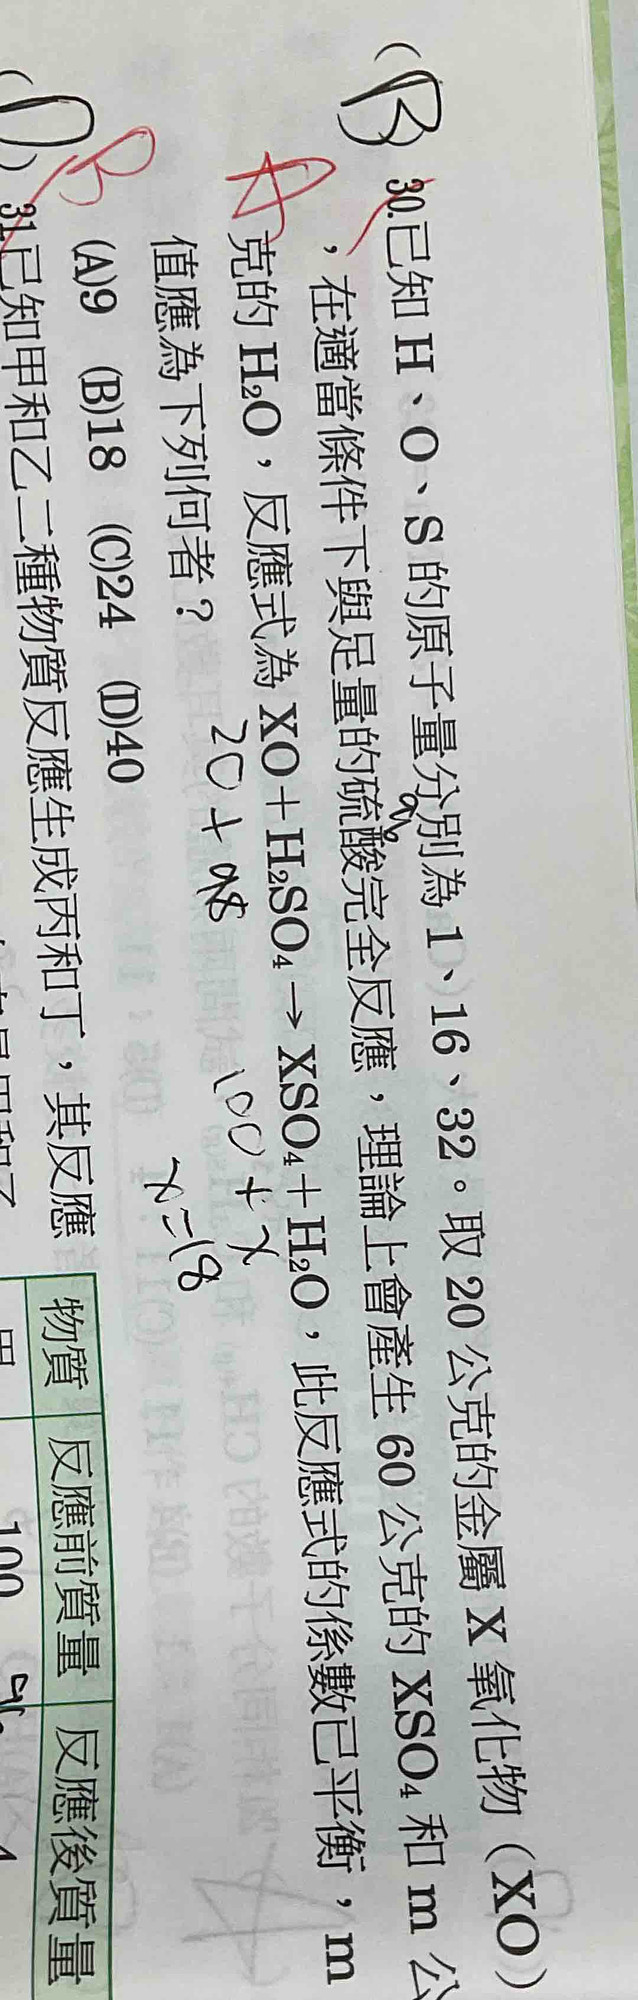 (B)30.已知 H、O、S 的原子量分別為 1、16、32。取 20 公克的金屬 X 氧化物(XO)
,在適當條件下與足量的硫酸完全反應,理論上會產生 60 公克的 XSO₄ 和 m 公
A
克的 H₂O,反應式為 XO+H₂SO₄→XSO₄+H₂O,此反應式的係數已平衡,m
20+98 100+x
值應為下列何者?
x=18
(A)9 (B)18 (C)24 (D)40
B
(D)31.已知甲和乙二種物質反應生成丙和丁,其反應
物質 反應前質量 反應後質量
甲 100